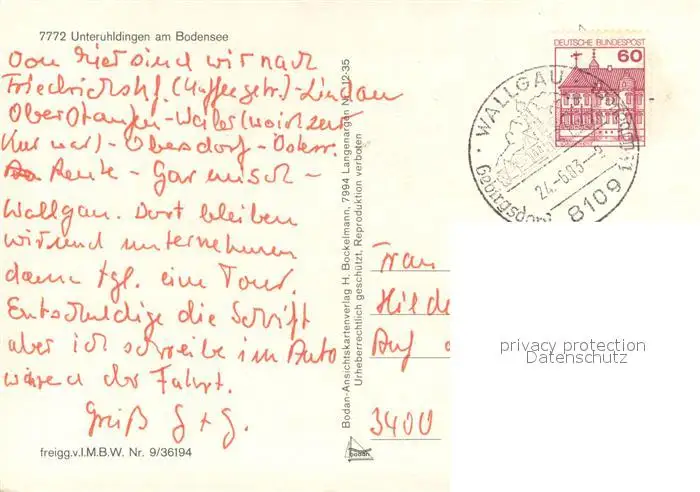 7772 Unteruhldingen am Bodensee
von hier sind wir nach
Friedrichsh. (Kaffeegetr.)-Lindau
Oberstaufen-Weiler (wo ich zur
Kur war)-Obersdorf-Österr.
Reute-Garmisch-
Wallgau. Dort bleiben
wir und unternehmen
dann tgl. eine Tour.
Entschuldige die Schrift
aber ich schreibe im Auto
wärend der Fahrt.
Gruß G + G.
freigg.v.I.M.B.W. Nr. 9/36194
Bodan-Ansichtskartenverlag H. Bockelmann, 7994 Langenargen Nr. 12-35
Urheberrechtlich geschützt, Reproduktion verboten
bodan
DEUTSCHE BUNDESPOST
60
WALLGAU
24.-6.83-
8109 1
Gebirgsdorf
Frau
Hilde
Auf
3400
privacy protection
Datenschutz